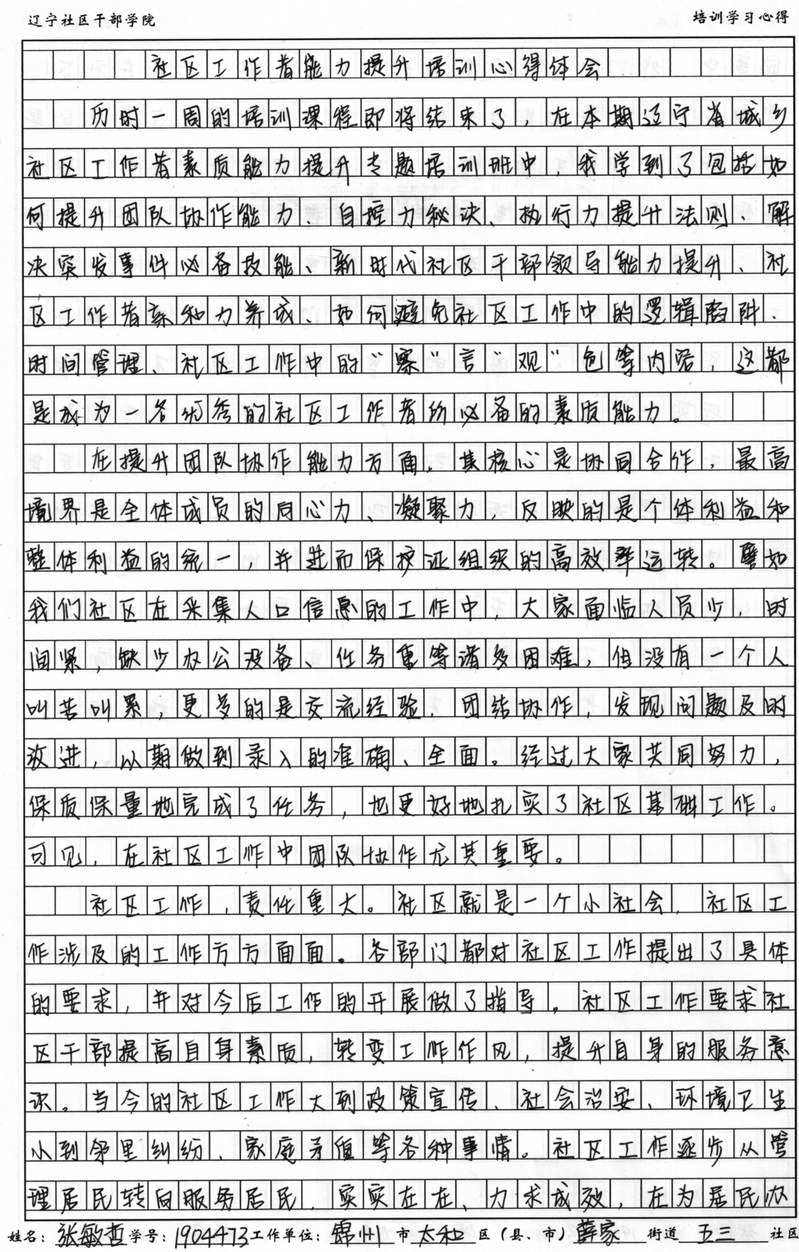 辽宁社区干部学院 培训学习心得
社区工作者能力提升培训心得体会
历时一周的培训课程即将结束了，在本期辽宁省城乡
社区工作者素质能力提升专题培训班中，我学到了包括如
何提升团队协作能力、自控力秘诀、执行力提升法则、解
决突发事件必备技能、新时代社区干部领导能力提升、社
区工作者亲和力养成、如何避免社区工作中的逻辑陷阱、
时间管理、社区工作中的“察”言“观”色等内容，这都
是成为一名优秀的社区工作者所必备的素质能力。
在提升团队协作能力方面，其核心是协同合作，最高
境界是全体成员的向心力、凝聚力，反映的是个体利益和
整体利益的统一，并进而保护证组织的高效率运转。譬如
我们社区在采集人口信息的工作中，大家面临人员少，时
间紧，缺少办公设备、任务重等诸多困难，但没有一个人
叫苦叫累，更多的是交流经验，团结协作，发现问题及时
改进，以期做到录入的准确、全面。经过大家共同努力，
保质保量地完成了任务，也更好地扎实了社区基础工作。
可见，在社区工作中团队协作尤其重要。
社区工作，责任重大。社区就是一个小社会，社区工
作涉及的工作方方面面。各部门都对社区工作提出了具体
的要求，并对今后工作的开展做了指导。社区工作要求社
区干部提高自身素质，转变工作作风，提升自身的服务意
识。当今的社区工作大到政策宣传、社会治安、环境卫生
小到邻里纠纷、家庭矛盾等各种事情。社区工作逐步从管
理居民转向服务居民，实实在在、力求成效，在为居民办
姓名：张敏哲 学号：1904473 工作单位：锦州 市 太和 区（县、市） 薛家 街道 五三 社区